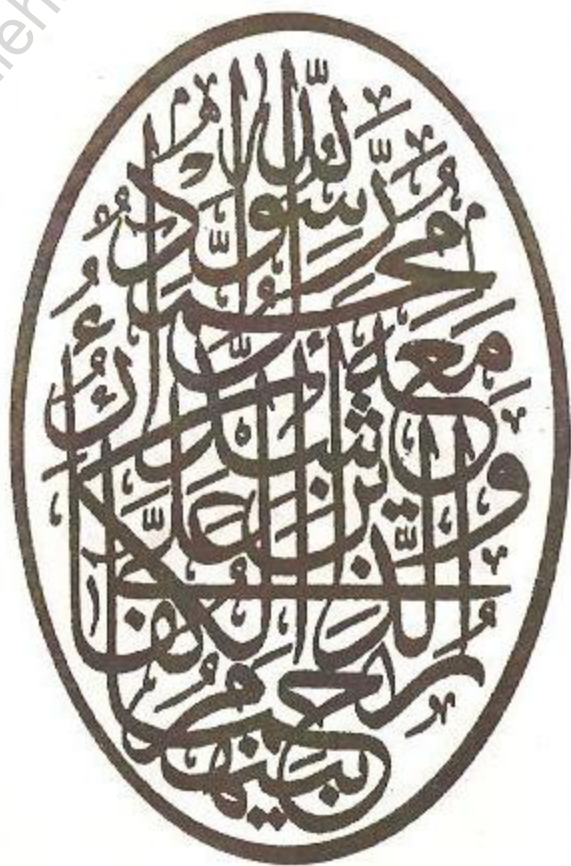 مُحَمَّدٌ رَّسُولُ اللَّهِ وَالَّذِينَ مَعَهُ أَشِدَّاءُ عَلَى الْكُفَّارِ رُحَمَاءُ بَيْنَهُمْ